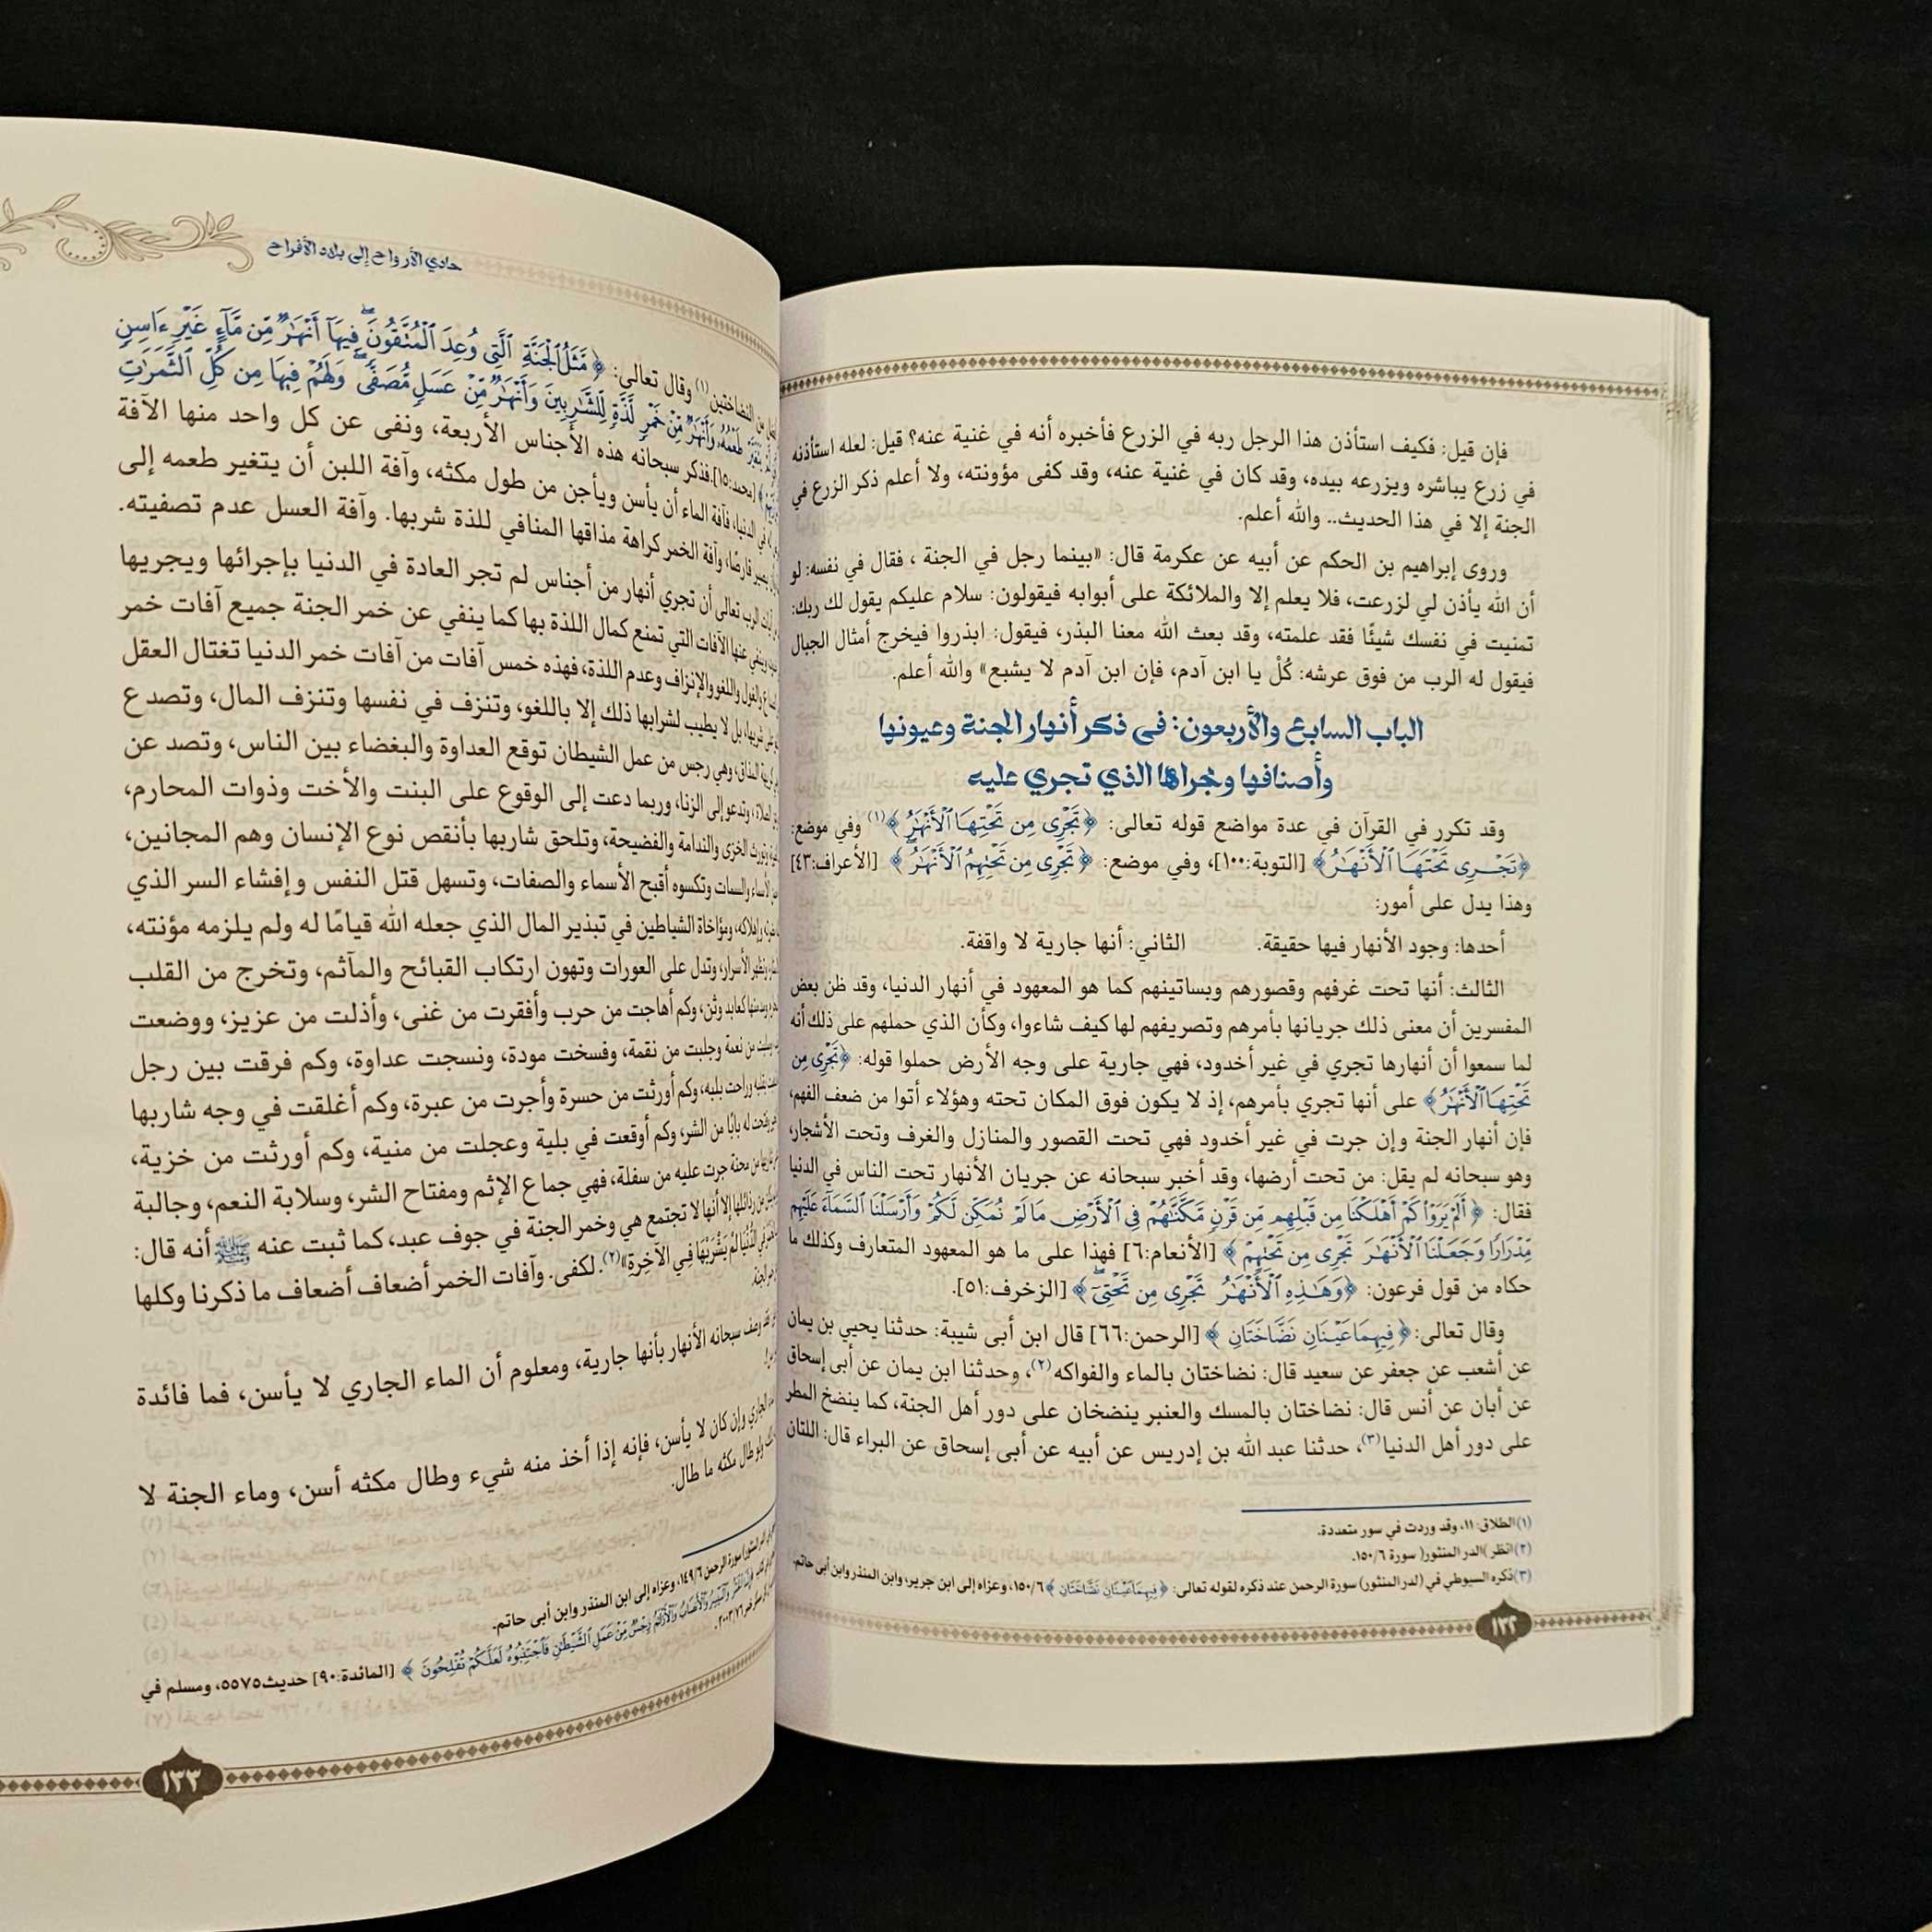 فإن قيل: فكيف استأذن هذا الرجل ربه في الزرع فأخبره أنه في غنية عنه؟ قيل: لعله استأذنه
في زرع يباشره ويزرعه بيده، وقد كان في غنية عنه، وقد كفى مؤونته، ولا أعلم ذكر الزرع في
الجنة إلا في هذا الحديث.. والله أعلم.
وروى إبراهيم بن الحكم عن أبيه عن عكرمة قال: «بينما رجل في الجنة ، فقال في نفسه: لو
أن الله يأذن لي لزرعت، فلا يعلم إلا والملائكة على أبوابه فيقولون: سلام عليكم يقول لك ربك:
تمنيت في نفسك شيئًا فقد علمته، وقد بعث الله معنا البذر، فيقول: ابذروا فيخرج أمثال الجبال
فيقول له الرب من فوق عرشه: كُلْ يا ابن آدم، فإن ابن آدم لا يشبع» والله أعلم.
الباب السابع والأربعون: في ذكر أنهار الجنة وعيونها
وأصنافها ومجراها الذي تجري عليه
وقد تكرر في القرآن في عدة مواضع قوله تعالى: ﴿تَجْرِى مِن تَحْتِهَا ٱلْأَنْهَٰرُ﴾(١) وفي موضع:
﴿تَجْرِى تَحْتَهَا ٱلْأَنْهَٰرُ﴾ [التوبة:١٠٠]، وفي موضع: ﴿تَجْرِى مِن تَحْتِهِمُ ٱلْأَنْهَٰرُ﴾ [الأعراف:٤٣]
وهذا يدل على أمور:
أحدها: وجود الأنهار فيها حقيقة. الثاني: أنها جارية لا واقفة.
الثالث: أنها تحت غرفهم وقصورهم وبساتينهم كما هو المعهود في أنهار الدنيا، وقد ظن بعض
المفسرين أن معنى ذلك جريانها بأمرهم وتصريفهم لها كيف شاءوا، وكأن الذي حملهم على ذلك أنه
لما سمعوا أن أنهارها تجري في غير أخدود، فهي جارية على وجه الأرض حملوا قوله: ﴿تَجْرِى مِن
تَحْتِهَا ٱلْأَنْهَٰرُ﴾ على أنها تجري بأمرهم، إذ لا يكون فوق المكان تحته وهؤلاء أتوا من ضعف الفهم،
فإن أنهار الجنة وإن جرت في غير أخدود فهي تحت القصور والمنازل والغرف وتحت الأشجار،
وهو سبحانه لم يقل: من تحت أرضها، وقد أخبر سبحانه عن جريان الأنهار تحت الناس في الدنيا
فقال: ﴿أَلَمْ يَرَوْا۟ كَمْ أَهْلَكْنَا مِن قَبْلِهِم مِّن قَرْنٍ مَّكَّنَّٰهُمْ فِى ٱلْأَرْضِ مَا لَمْ نُمَكِّن لَّكُمْ وَأَرْسَلْنَا ٱلسَّمَآءَ عَلَيْهِم
مِّدْرَارًا وَجَعَلْنَا ٱلْأَنْهَٰرَ تَجْرِى مِن تَحْتِهِمْ﴾ [الأنعام:٦] فهذا على ما هو المعهود المتعارف وكذلك ما
حكاه من قول فرعون: ﴿وَهَٰذِهِ ٱلْأَنْهَٰرُ تَجْرِى مِن تَحْتِىٓ﴾ [الزخرف:٥١].
وقال تعالى: ﴿فِيهِمَا عَيْنَانِ نَضَّاخَتَانِ﴾ [الرحمن:٦٦] قال ابن أبى شيبة: حدثنا يحيي بن يمان
عن أشعب عن جعفر عن سعيد قال: نضاختان بالماء والفواكه(٢)، وحدثنا ابن يمان عن أبى إسحاق
عن أبان عن أنس قال: نضاختان بالمسك والعنبر ينضخان على دور أهل الجنة، كما ينضخ المطر
على دور أهل الدنيا(٣)، حدثنا عبد الله بن إدريس عن أبيه عن أبى إسحاق عن البراء قال: اللتان
(١) الطلاق: ١١، وقد وردت في سور متعددة.
(٢) انظر )الدر المنثور( سورة ١٥٠/٦.
(٣) ذكره السيوطي في (لدر المنثور) سورة الرحمن عند ذكره لقوله تعالى: ﴿فِيهِمَا عَيْنَانِ نَضَّاخَتَانِ﴾ ١٥٠/٦، وعزاه إلى ابن جرير، وابن المنذر وابن أبى حاتم.
١٣٢
حادي الأرواح إلى بلاد الأفراح
من النضاختين(١) وقال تعالى: ﴿مَّثَلُ ٱلْجَنَّةِ ٱلَّتِى وُعِدَ ٱلْمُتَّقُونَ فِيهَآ أَنْهَٰرٌ مِّن مَّآءٍ غَيْرِ ءَاسِنٍ
طَعْمُهُۥ وَأَنْهَٰرٌ مِّنْ خَمْرٍ لَّذَّةٍ لِّلشَّٰرِبِينَ وَأَنْهَٰرٌ مِّنْ عَسَلٍ مُّصَفًّى وَلَهُمْ فِيهَا مِن كُلِّ ٱلثَّمَرَٰتِ
[محمد:١٥]. فذكر سبحانه هذه الأجناس الأربعة، ونفى عن كل واحد منها الآفة
في الدنيا، فآفة الماء أن يأسن ويأجن من طول مكثه، وآفة اللبن أن يتغير طعمه إلى
يصير قارصًا، وآفة الخمر كراهة مذاقها المنافي للذة شربها. وآفة العسل عدم تصفيته.
الرب تعالى أن تجري أنهار من أجناس لم تجر العادة في الدنيا بإجرائها ويجريها
وينفي عنها الآفات التي تمنع كمال اللذة بها كما ينفي عن خمر الجنة جميع آفات خمر
والغول واللغو والإنزاف وعدم اللذة، فهذه خمس آفات من آفات خمر الدنيا تغتال العقل
شربها، بل لا يطيب لشرابها ذلك إلا باللغو، وتنزف في نفسها وتنزف المال، وتصدع
المذاق، وهي رجس من عمل الشيطان توقع العداوة والبغضاء بين الناس، وتصد عن
الصلاة، وتدعو إلى الزنا، وربما دعت إلى الوقوع على البنت والأخت وذوات المحارم،
وتورث الخزى والندامة والفضيحة، وتلحق شاربها بأنقص نوع الإنسان وهم المجانين،
الأسماء والسمات وتكسوه أقبح الأسماء والصفات، وتسهل قتل النفس وإفشاء السر الذي
ومؤاخاة الشياطين في تبذير المال الذي جعله الله قيامًا له ولم يلزمه مؤنته،
وتظهر الأسرار، وتدل على العورات وتهون ارتكاب القبائح والمآثم، وتخرج من القلب
كعابد وثن، وكم أهاجت من حرب وأفقرت من غنى، وأذلت من عزيز، ووضعت
من نعمة وجلبت من نقمة، وفسخت مودة، ونسجت عداوة، وكم فرقت بين رجل
وراحت بلبه، وكم أورثت من حسرة وأجرت من عبرة، وكم أغلقت في وجه شاربها
وفتحت له بابًا من الشر، وكم أوقعت في بلية وعجلت من منية، وكم أورثت من خزية،
من محنة جرت عليه من سفلة، فهي جماع الإثم ومفتاح الشر، وسلابة النعم، وجالبة
من رذائلها إلا أنها لا تجتمع هي وخمر الجنة في جوف عبد، كما ثبت عنه ﷺ أنه قال:
فِي الدُّنْيَا لَمْ يَشْرَبْهَا فِي الْآخِرَةِ»(٢). لكفى. وآفات الخمر أضعاف أضعاف ما ذكرنا وكلها
وصف سبحانه الأنهار بأنها جارية، ومعلوم أن الماء الجاري لا يأسن، فما فائدة
الجاري وإن كان لا يأسن، فإنه إذا أخذ منه شيء وطال مكثه أسن، وماء الجنة لا
ولو طال مكثه ما طال.
سورة الرحمن ١٤٩/٦، وعزاه إلى ابن المنذر وابن أبى حاتم.
رِجْسٌ مِّنْ عَمَلِ ٱلشَّيْطَٰنِ فَٱجْتَنِبُوهُ لَعَلَّكُمْ تُفْلِحُونَ﴾ [المائدة:٩٠] حديث٥٥٧٥، ومسلم في
١٣٣